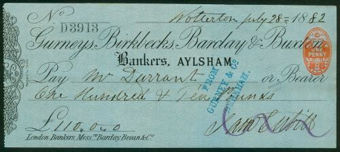 No D3913 Wolterton July 28th 1882
Gurneys, Birkbecks, Barclay & Buxton
Bankers, AYLSHAM.
Pay Mr Durrant or Bearer
One Hundred & Ten Pounds
£110.0.0
London Bankers, Messrs. Barclay, Bevan & Co.
FROM
GURNEY & Co
PENNY